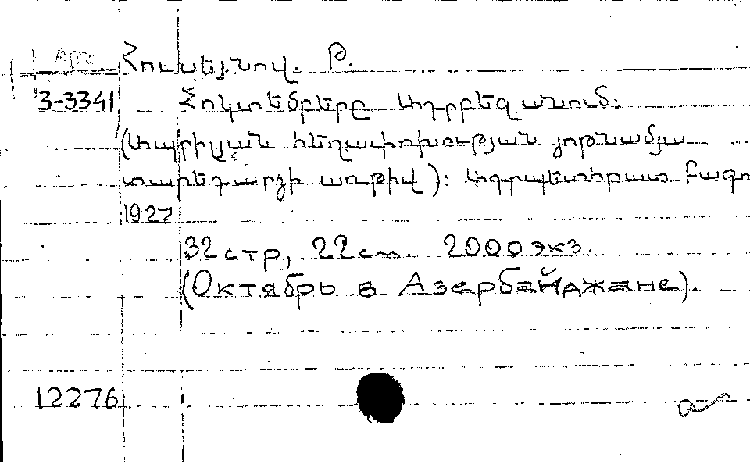 Арм Հուսեյնով. Թ.
3-3341 Հոկտեմբերը Ադրբեջանում:
(Ապրիլյան հեղափոխության յոթնամյա
տարեդարձի առթիվ): Ադրպետհրատ Բագու
1927
32 стр, 22 см 2000 экз.
(Октябрь в Азербайджане).
12276